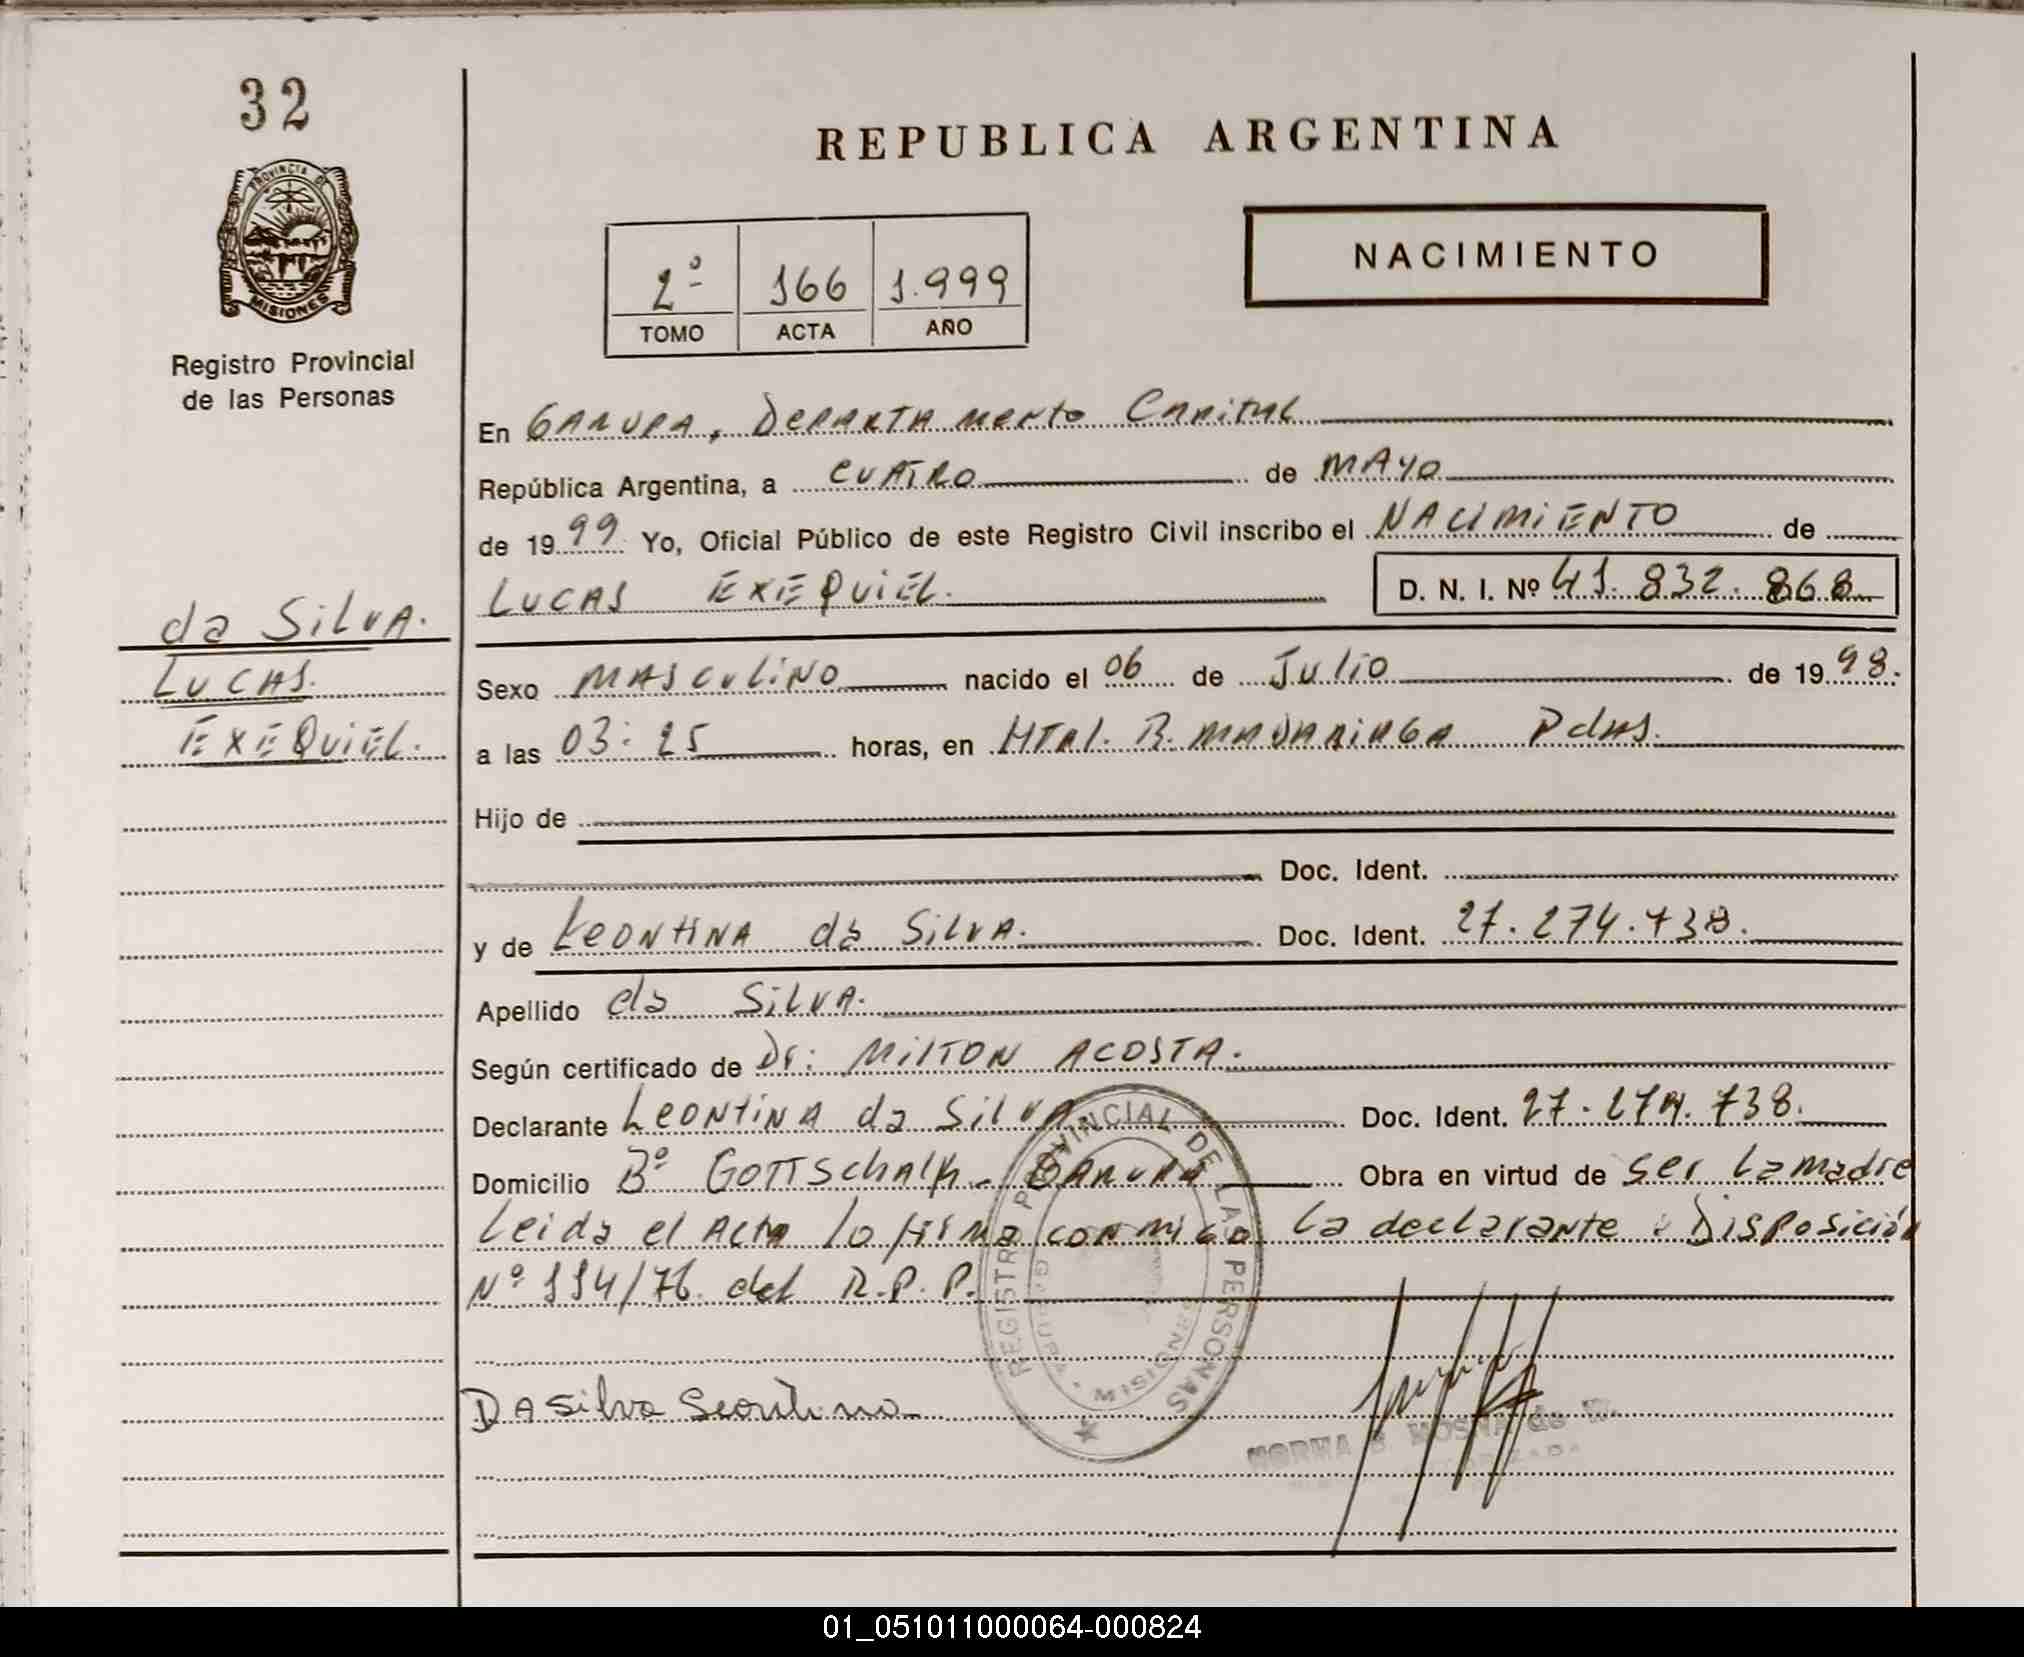 32
PROVINCIA DE
MISIONES
Registro Provincial
de las Personas
da Silva.
Lucas.
Exequiel.
REPUBLICA ARGENTINA
NACIMIENTO
2º 166 1.999
TOMO ACTA AÑO
En Garupa, Departamento Capital
República Argentina, a cuatro de Mayo
de 1999 Yo, Oficial Público de este Registro Civil inscribo el NACIMIENTO de
Lucas Exequiel. D. N. I. Nº 41.832.868
Sexo Masculino nacido el 06 de Julio de 1998.
a las 03:25 horas, en Htal. R. Madariaga Pdas.
Hijo de
Doc. Ident.
y de Leontina da Silva. Doc. Ident. 27.274.738.
Apellido da Silva.
Según certificado de Dr: Milton Acosta.
Declarante Leontina da Silva Doc. Ident. 27.274.738.
Domicilio Bº Gottschalk - Garupa Obra en virtud de ser la madre
Leida el Acta lo firma conmigo la declarante Disposición
Nº 114/76 del R.P.P.
REGISTRO PROVINCIAL DE LAS PERSONAS
GARUPA - MISIONES
Da Silva Leontina
NORMA B MOSNA de
01_051011000064-000824